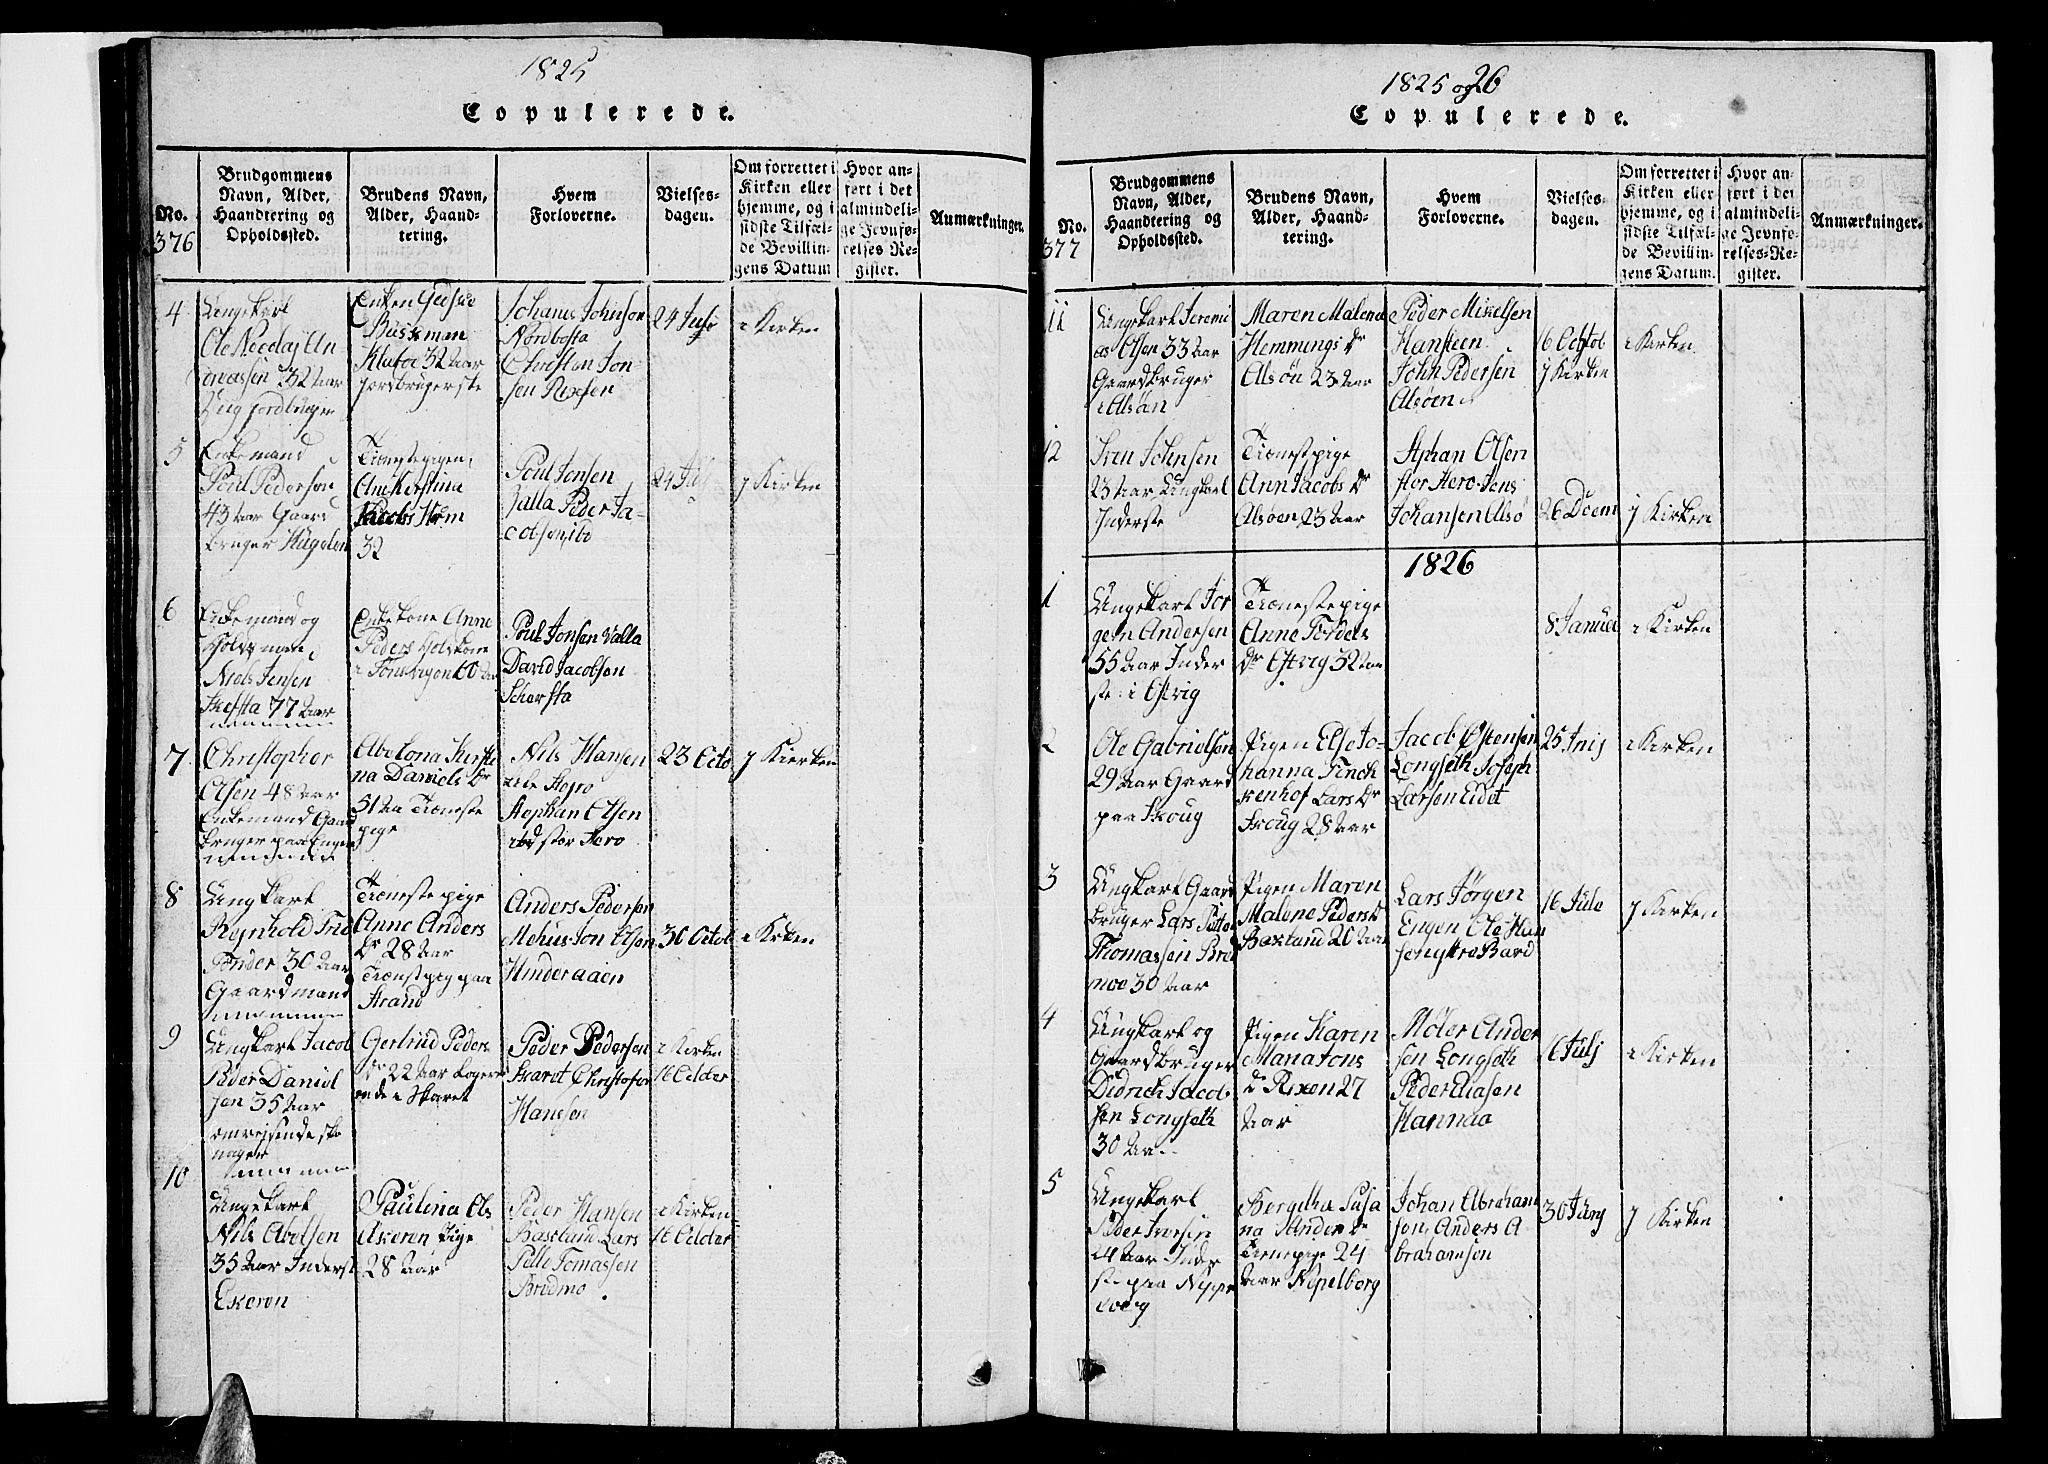 1825
Copulerede.
No.
376
Brudgommens
Navn, Alder,
Haandtering og
Opholdssted.
Brudens Navn,
Alder, Haand-
tering.
Hvem
Forloverne.
Vielses-
dagen.
Om forrettet i
Kirken eller
hjemme, og i
sidste Tilfæl-
de Bevillin-
gens Datum
Hvor an-
ført i det
almindeli-
ge Jevnfø-
relses Re-
gister.
Anmærkninger.
4
Ungekarl
Ole
32 Aar
Enken
Busk man
32 Aar
jordbrugerske
Johanis Johnsen
Nordbosta
Christen Jon
sen Rixsen
24 July
i Kirken
5
Enkemand
Poul Pedersen
43 Aar Gaard
bruger
Tienestepigen
Anekerstina
Jacobs
32
Poul Jonsen
Valla Peder Ja-
cobsen ibd
24 July
j Kirken
6
Enkemand og
Niels Jensen
77 Aar
Enkekone Anne
Peders
60 Aar
Poul Jonsen Valla
David Jacobsen
Scharsta
7
Christopher
Olsen 48 Aar
Enkemand Gaard
bruger paa Engen
Abelona Kirsti
na Daniels Dr
51 Aar Tieneste
pige
Nils Hansen
Stephan Olsen
ibd stor Hero
23 Octo
j Kierken
8
Ungkarl
Rejnhold Frid
Tønder 30 Aar
Gaardmand
Tienestepige
Anne Anders
Dr 28 Aar
Tienestpig paa
Strand
Anders Pedersen
Jon Olsen
Hinderaaen
30 Octob
i Kirken
9
Ungkarl Jacob
Peder Daniel
sen 35 Aar
omrejsende sko
mager
Gertrud Peders
Dr 22 Aar Logere
ende i Skaret
Peder Pedersen
Skaret Christofor
Hansen
i Kirken
16 October
10
Ungekarl
Nils Abelsen
35 Aar Inderst
Exeren
Paulina Ols
Axeren Pige
28 Aar
Peder Hansen
Baxland Lars
Pette Tomassen
Bredmo
i Kirken
16 October
1825 og 26
Copulerede.
No.
377
Brudgommens
Navn, Alder,
Haandtering og
Opholdssted.
Brudens Navn,
Alder, Haand-
tering.
Hvem
Forloverne.
Vielses-
dagen.
Om forrettet i
Kirken eller
hjemme, og i
sidste Tilfæl-
de Bevillin-
gens Datum.
Hvor an-
ført i det
almindeli-
ge Jevnfø-
relses-Re-
gister.
Anmærkninger.
11
Ungekarl Jeremi
as Olsen 33 Aar
Gaardbruger
i Alsøn
Maren Malena
Hemmings Dr
Alsøn 23 Aar
Peder Mikelsen
Hansteen
John Pedersen
Alsøen
16 Octob
j Kirken
i Kirken
12
Sven Johnsen
23 Aar Ungkarl
Inderste
Tienestpige
Ann Jacobs Dr
Alsøen 23 Aar
Stphan Olsen
stor Hero Jens
Johansen Alsø
26 Dcem
j Kirken
1826
1
Ungekarl Jør
gen Andersen
55 Aar Inder
ste i Estvig
Tienestepige
Anne Tordels
Dr Estvig 32 Aar
8 Januar
i Kirken
2
Ole Gabrielsen
29 Aar Gaard
paa Skoug
Pigen Else Jo-
hanna Finck
kenhof Lars Dr
Skoug 28 Aar
Jacob Østensen
Longseth Joseph
Larsen Eidet
25 Junij
i Kirken
3
Ungkarl Gaard
bruger Lars Pette
Thomassen Bred
moe 30 Aar
Pigen Maren
Malene Peders Dr
Baxland 20 Aar
Lars Jørgen
Engen Ole Han
sen yttre Bard
16 Jule
j Kirken
4
Ungkarl og
Gaardbruger
Didrich Jacob
sen Longseth
30 Aar
Pigen Karen
Mana Tons
Dr Rixen 27
Aar
Møler Ander
sen Longseth
Peder Eliasen
Hannaa
16 Julj
i Kirken
5
Ungekarl
Peder Iversen
24 Aar Inder
ste paa Nippe
borg
Bergitha Susa
na Anders Dr
Tienepige 24
Aar Nipelborg
Johan Abraham
sen, Anders A
brahamsen
30 July
j Kirken